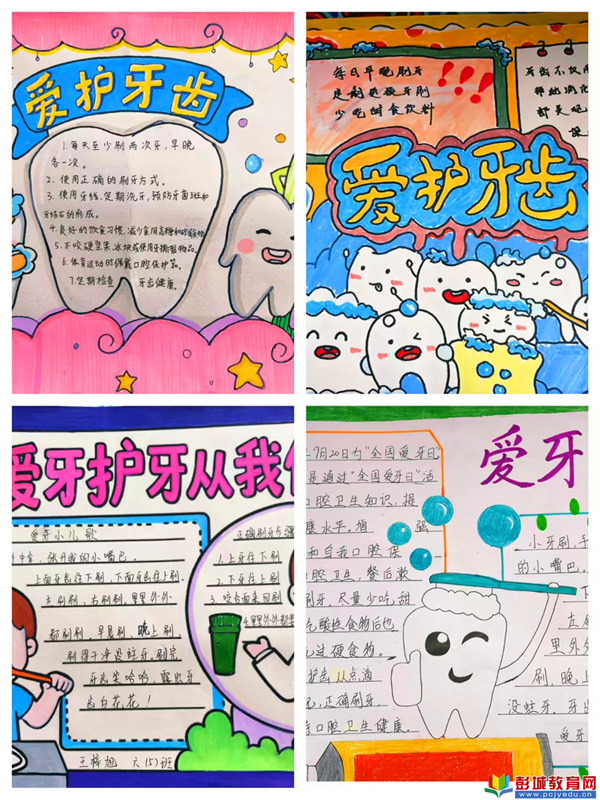 爱护牙齿
1.每天至少刷两次牙,早晚
各一次。
2.使用正确的刷牙方式。
3.使用牙线,定期洗牙,预防牙菌斑和
牙结石的形成。
4.良好的饮食习惯,减少食用高糖和
5.不咬硬坚果、冰块或使用牙撕裂物品。
6.体育运动时佩戴口腔保护器。
7.定期检查 牙齿健康。
每日早晚刷牙
定期更换牙刷
少吃甜食饮料
牙齿不仅用
都是
爱护牙齿
爱牙护牙从我
爱牙小儿歌
张开我的小嘴巴。
上面牙齿往下刷,下面牙齿往上刷
左刷刷,右刷刷,里里外外
都刷刷,早晨刷,晚上刷,
刷得干净没蛀牙。刷完
牙齿笑哈哈,露出牙
齿白花花!
王梓旭 六(5)班
正确刷牙方
1.上牙往下刷
2.下牙往上刷
3.咬合面来回刷
4.里里外外都要
9月20日为“全国爱牙日”
是通过“全国爱牙日”活
口腔卫生知识,提
康水平,增 强
和自我口腔保
口腔卫生,餐后漱
刷牙,尽量少吃甜
吃酸性食物后也
过硬食物。
从点滴
正确刷牙,
口腔卫生健康。
爱牙
小牙刷,手
的小嘴巴。
下
左刷
里外外
刷,晚上
没蛀牙。牙齿
爱牙
彭城教育网
www.pcjyedu.cn